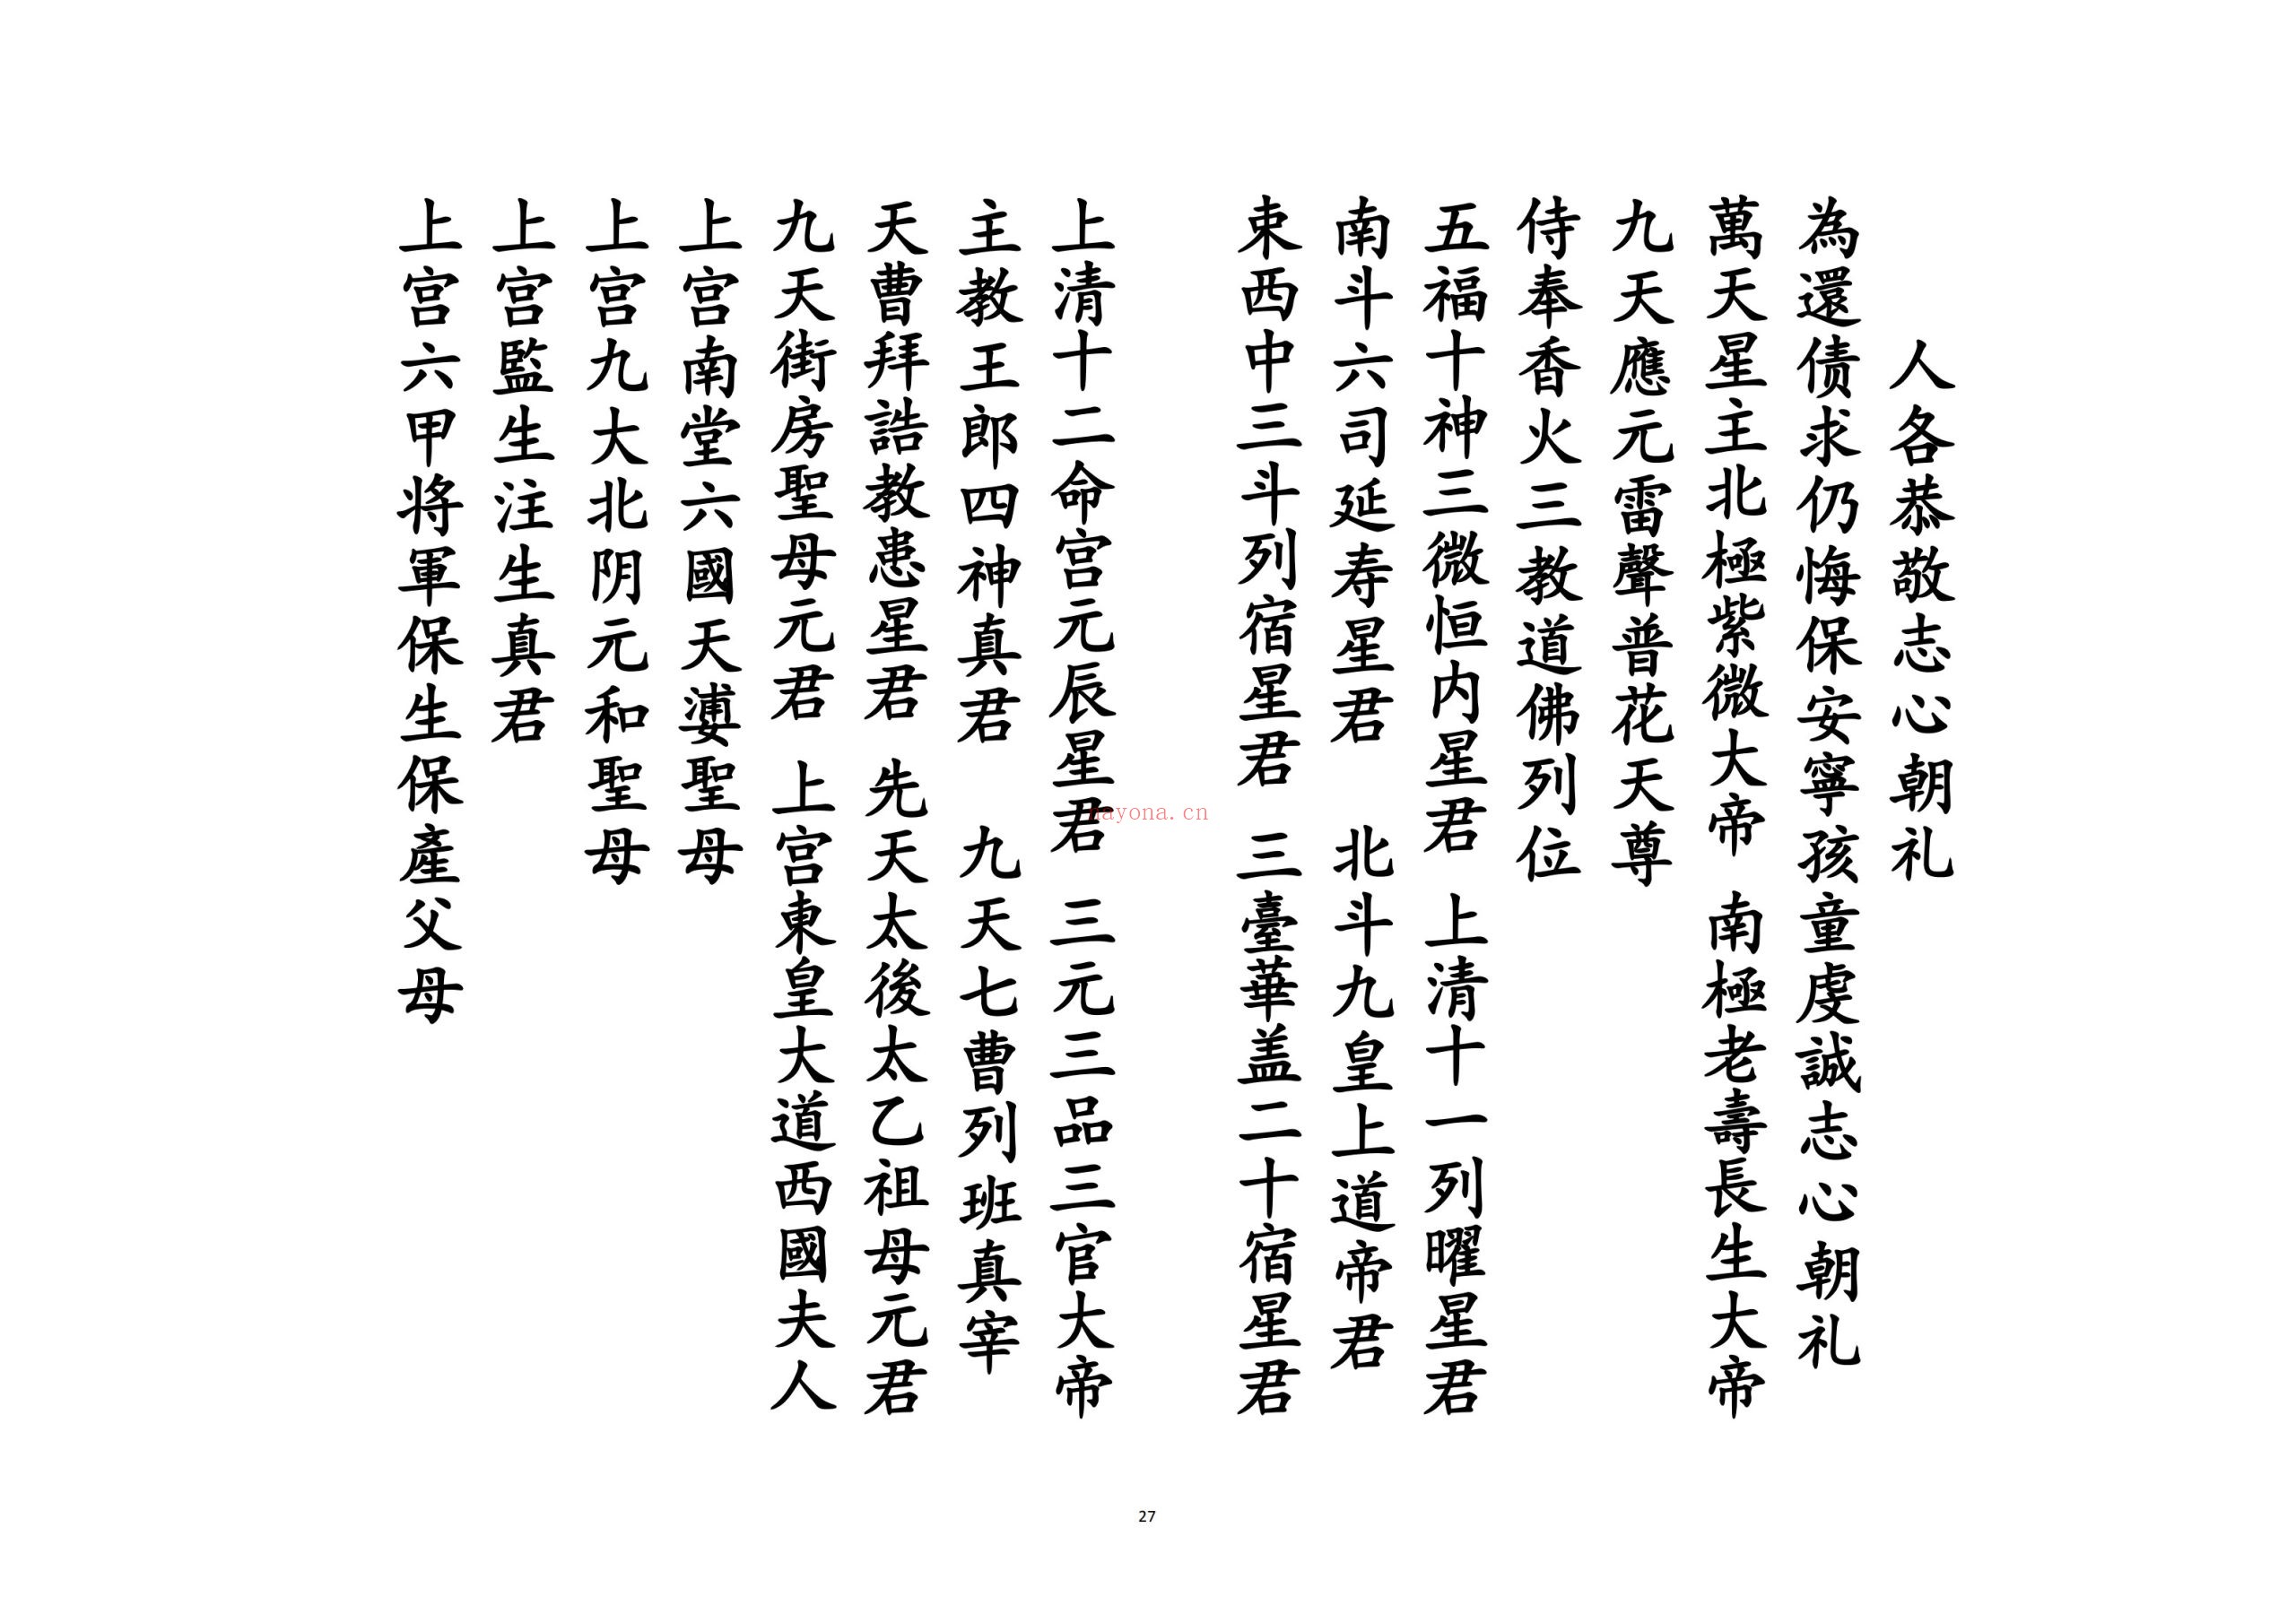 人各恭敬志心朝礼
為還债求仍悔保安寧孩童虔誠志心朝礼
萬天星主北極紫微大帝 南極老壽長生大帝
九天應元雷聲普花天尊
侍奉香火三教道佛列位
五福十神三微恒内星君 上清十一列曜星君
南斗六司延寿星君 北斗九皇上道帝君
東西中三斗列宿星君 三臺華盖二十宿星君
上清十二命宫元辰星君 三元三品三官大帝
主教王郎四神真君 九天七曹列班真宰
天曹拜誥教患星君 先天太後太乙祖母元君
九天街房聖母元君 上宫東皇大道西國夫人
上宫南堂六國天聖母
上宫九大北阴元和聖母
上宫監生注生真君
上宫六甲将軍保生保產父母
nayona.cn
27